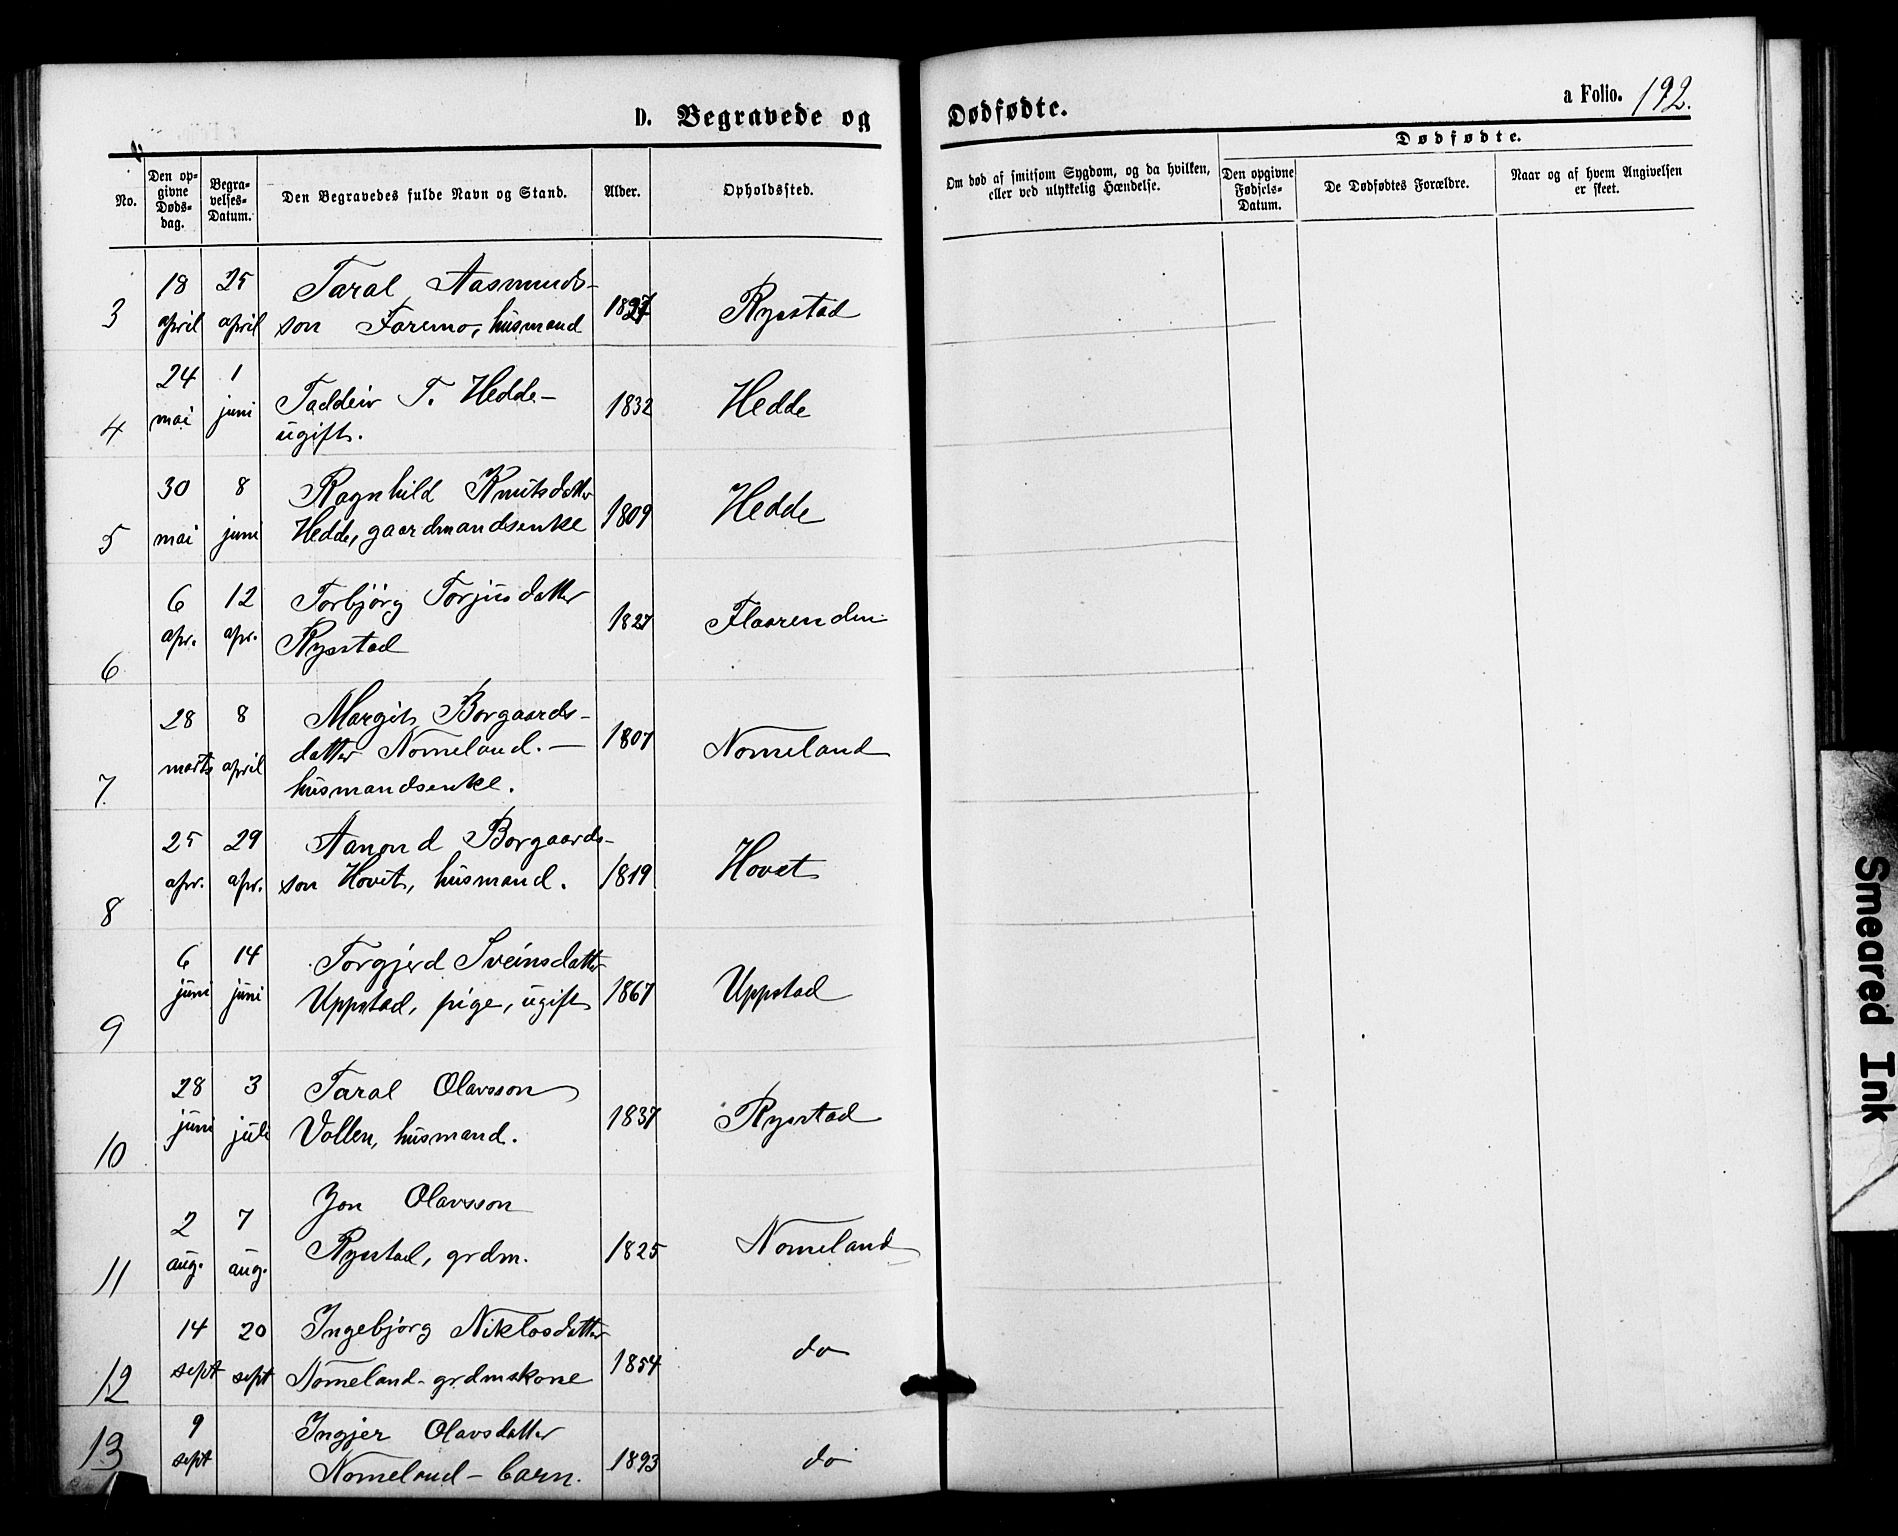 D. Begravede og Dødfødte.
a Folio. 192.
No.
Den opgivne Døds-dag.
Begravelses-Datum.
Den Begravedes fulde Navn og Stand.
Alder.
Opholdssted.
Om død af smitsom Sygdom, og da hvilken, eller ved ulykkelig Hændelse.
Dødfødte.
Den opgivne Fødsels-Datum.
De Dødfødtes Forældre.
Naar og af hvem Angivelsen er skeet.
3 18 april 25 april Taral Aasmunds-
son Faremo, husmand Rysstad
4 24 mai 1 juni Taddeiv T. Hedde -
ugift. 1832 Hedde
5 30 mai 8 juni Ragnhild Knutsdatter
Hedde, gaardmandsenke 1809 Hedde
6 6 apr. 12 apr. Torbjørg Torjusdatter
Rysstad 1827 Flaarenden
7 28 marts 8 april Margit Borgaards-
datter Nomeland. -
husmandsenke. 1807 Nomeland
8 25 apr. 29 apr. Aanond Borgaards-
son Hovet, husmand. 1819 Hovet
9 6 juni 14 juni Torgjerd Sveinsdatter
Uppstad, pige, ugift 1867 Uppstad
10 28 juni 3 juli Taral Olavsson
Vollen, husmand. 1837 Rysstad
11 2 aug. 7 aug. Jon Olavsson
Rysstad, grdm. 1825 Nomeland
12 14 sept 20 sept Ingebjørg Niklosdatter
Nomeland - grdmskone 1854 do
13 9 sept Ingjer Olavsdatter
Nomeland - barn. 1893 do
Smeared Ink